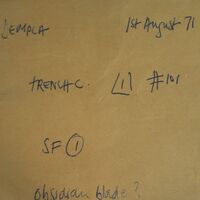 1st August 71
TRENCH C. 1 #101
SF 1
obsidian blade?